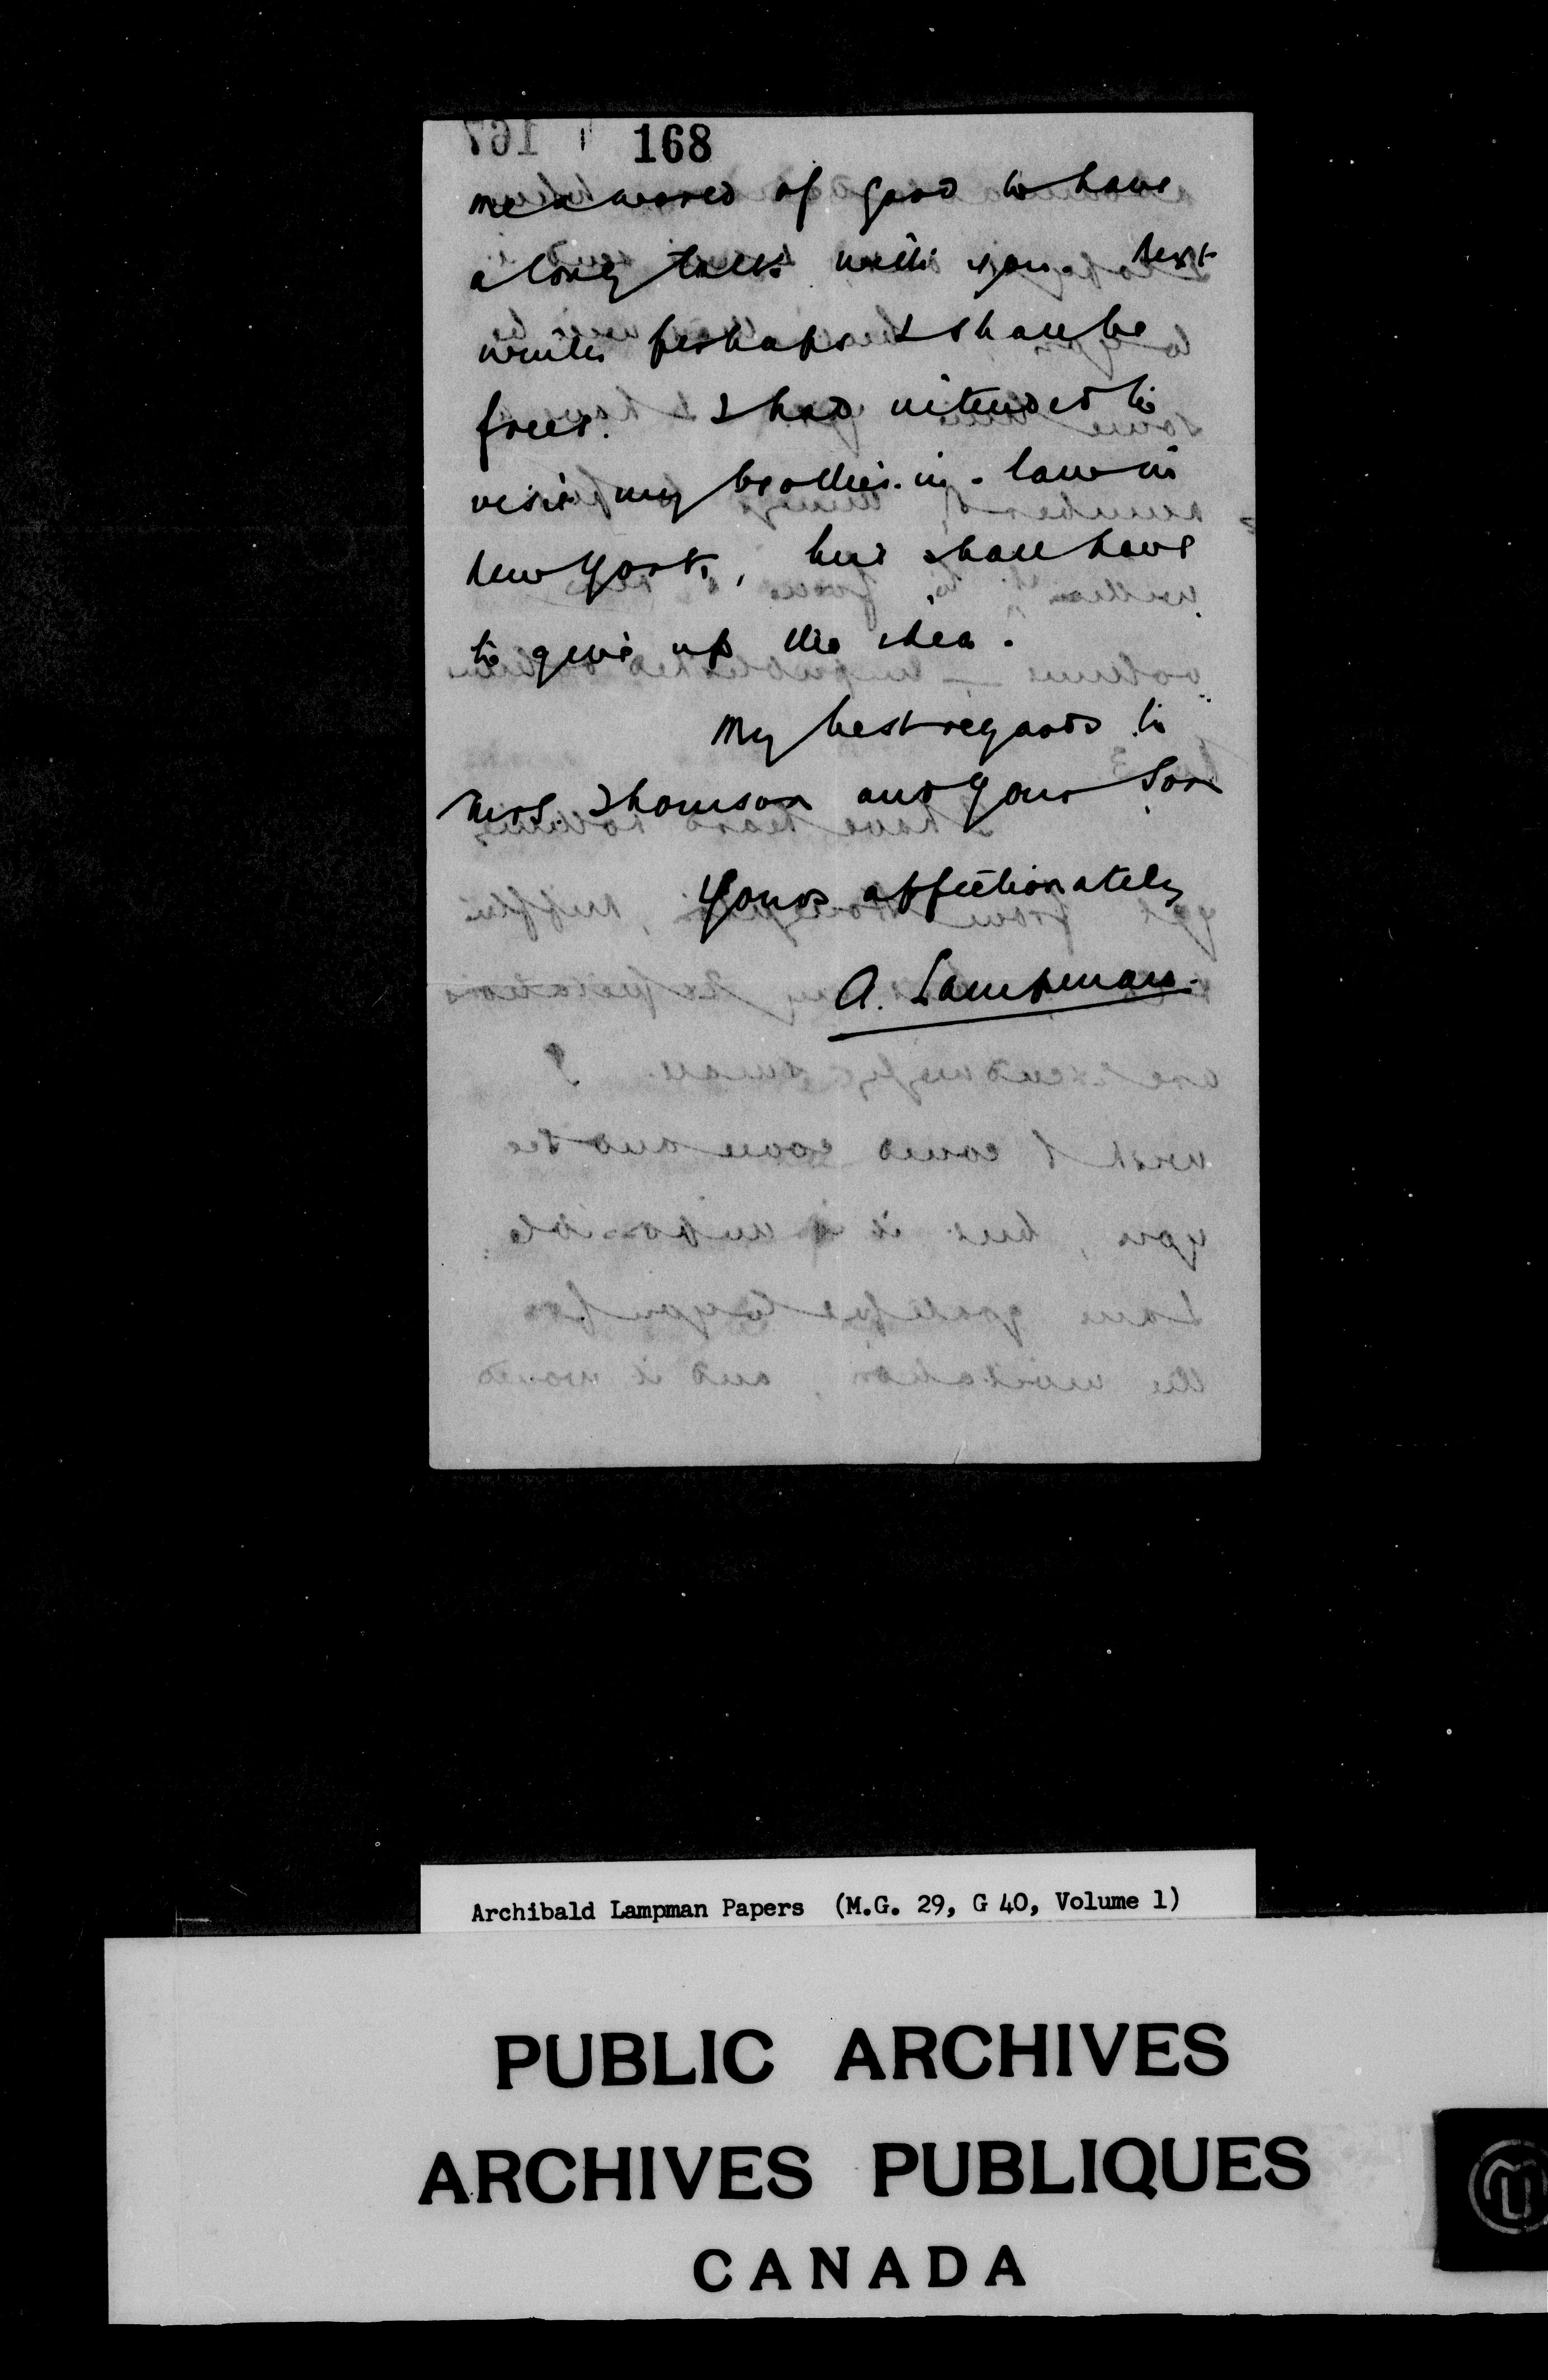 168
me a world of good to have
a long talk with you. Next
winter perhaps I shall be
freer. I had intended to
visit my brother-in-law in
New York, but shall have
to give up the idea.
My best regards to
Mrs. Thomson and your son
Yours affectionately
A. Lampman.
Archibald Lampman Papers (M.G. 29, G 40, Volume 1)
PUBLIC ARCHIVES
ARCHIVES PUBLIQUES
CANADA